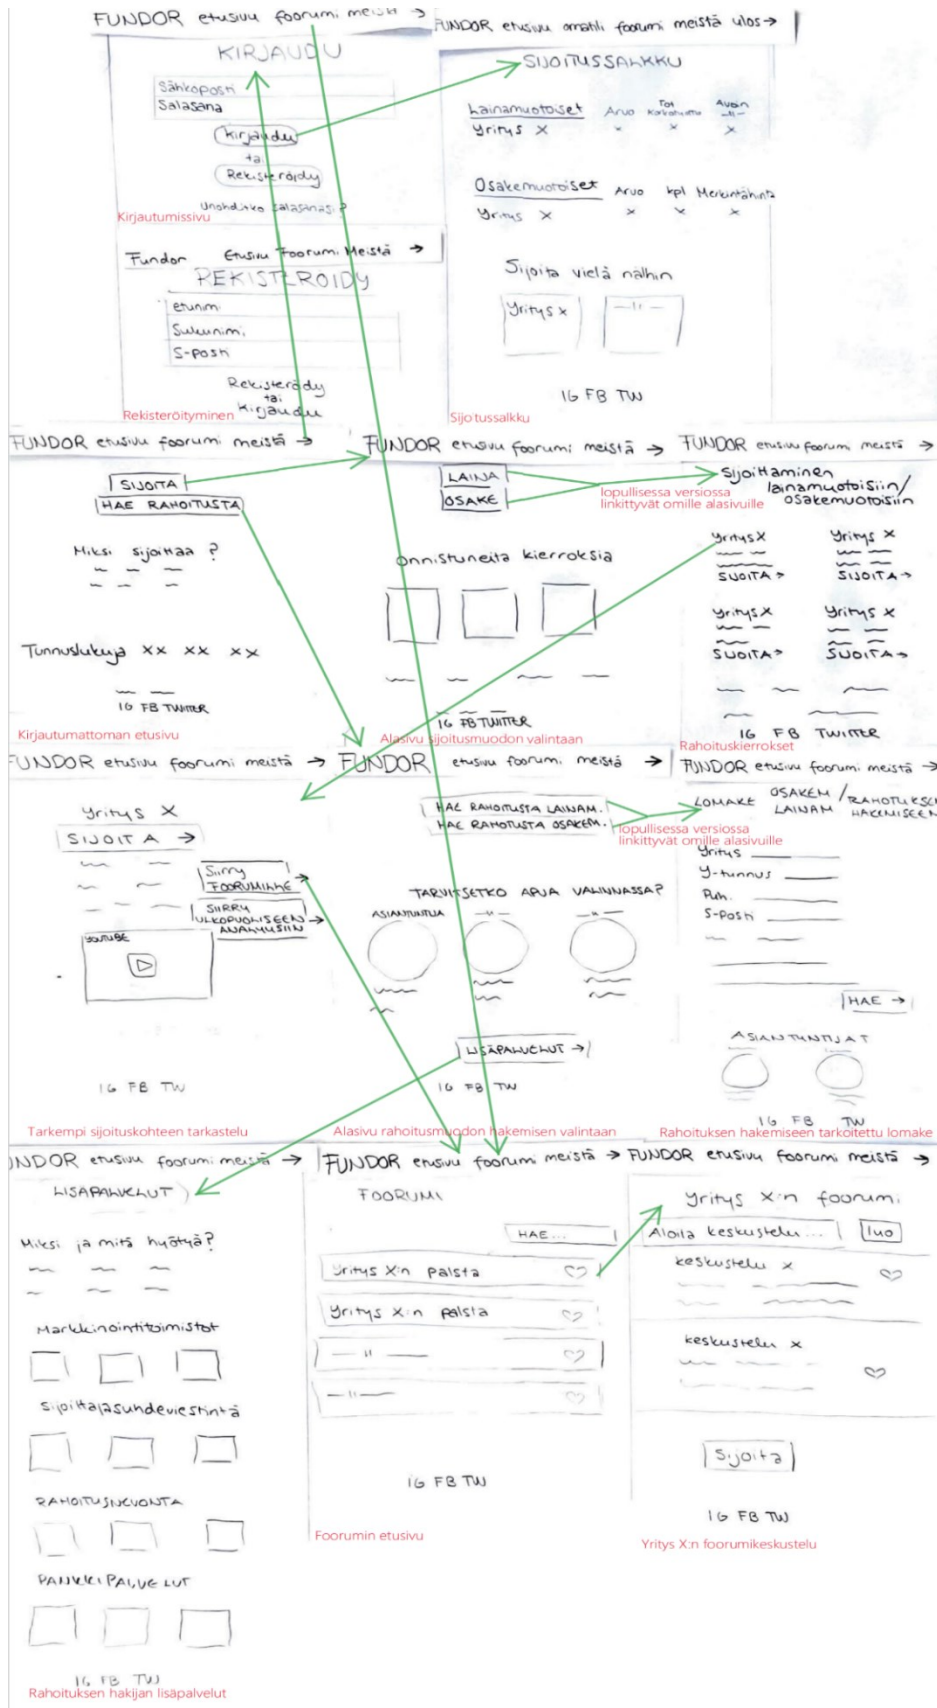 FUNDOR etusivu foorumi meistä →
KIRJAUDU
Sähköposti
Salasana
Kirjaudu
tai
Rekisteröidy
Unohditko salasanasi?
Kirjautumissivu
FUNDOR etusivu omatili foorumi meistä ulos→
SIJOITUSSALKKU
Lainamuotoiset Arvo Tot Korkotuotto Avoin —11—
Yritys X x x x
Osakemuotoiset Arvo kpl Merkintähinta
Yritys X x x x
Sijoita vielä näihin
Yritys x —11—
IG FB TW
Sijoitussalkku
Fundor Etusivu Foorumi Meistä →
REKISTERÖIDY
etunimi
Sukunimi
S-posti
Rekisterödy
tai
Kirjaudu
Rekisteröityminen
FUNDOR etusivu foorumi meistä →
SIJOITA
HAE RAHOITUSTA
Miksi sijoittaa ?
Tunnuslukuja xx xx xx
IG FB TWITTER
Kirjautumattoman etusivu
FUNDOR etusivu foorumi meistä →
LAINA
OSAKE
lopullisessa versiossa
linkittyvät omille alasivuille
Onnistuneita kierroksia
IG FB TWITTER
Alasivu sijoitusmuodon valintaan
FUNDOR etusivu foorumi meistä →
Sijoittaminen
lainamuotoisiin/
osakemuotoisiin
Yritys X Yritys X
SIJOITA→ SIJOITA→
Yritys X Yritys X
SIJOITA→ SIJOITA→
IG FB TWITTER
Rahoituskierrokset
FUNDOR etusivu foorumi meistä →
Yritys X
SIJOITA →
Siirry
FOORUMILLE
SIIRRY
ULKOPUOLISEEN →
ANALYYSIIN
YOUTUBE
IG FB TW
Tarkempi sijoituskohteen tarkastelu
FUNDOR etusivu foorumi meistä →
HAE RAHOITUSTA LAINAM.
HAE RAHOITUSTA OSAKEM.
lopullisessa versiossa
linkittyvät omille alasivuille
TARVITSETKO APUA VALINNASSA?
ASIANTUNTIJA —11— —11—
LISÄPALVELUT →
IG FB TW
Alasivu rahoitusmuodon hakemisen valintaan
FUNDOR etusivu foorumi meistä →
LOMAKE OSAKEM / LAINAM RAHOITUKSEN HAKEMISEEN
Yritys
Y-tunnus
Puh.
S-posti
HAE →
ASIANTUNTIJAT
IG FB TW
Rahoituksen hakemiseen tarkoitettu lomake
UNDOR etusivu foorumi meistä →
LISÄPALVELUT
Miksi ja mitä hyötyä?
Markkinointitoimistot
Sijoittajasuhdeviestintä
RAHOITUSNEUVONTA
PANKKIPALVELUT
IG FB TW
Rahoituksen hakijan lisäpalvelut
FUNDOR etusivu foorumi meistä →
FOORUMI
HAE...
Yritys X:n palsta
Yritys X:n palsta
— 11 —
—11—
IG FB TW
Foorumin etusivu
FUNDOR etusivu foorumi meistä →
Yritys X:n foorumi
Aloita keskustelu... luo
keskustelu x
keskustelu x
Sijoita
IG FB TW
Yritys X:n foorumikeskustelu